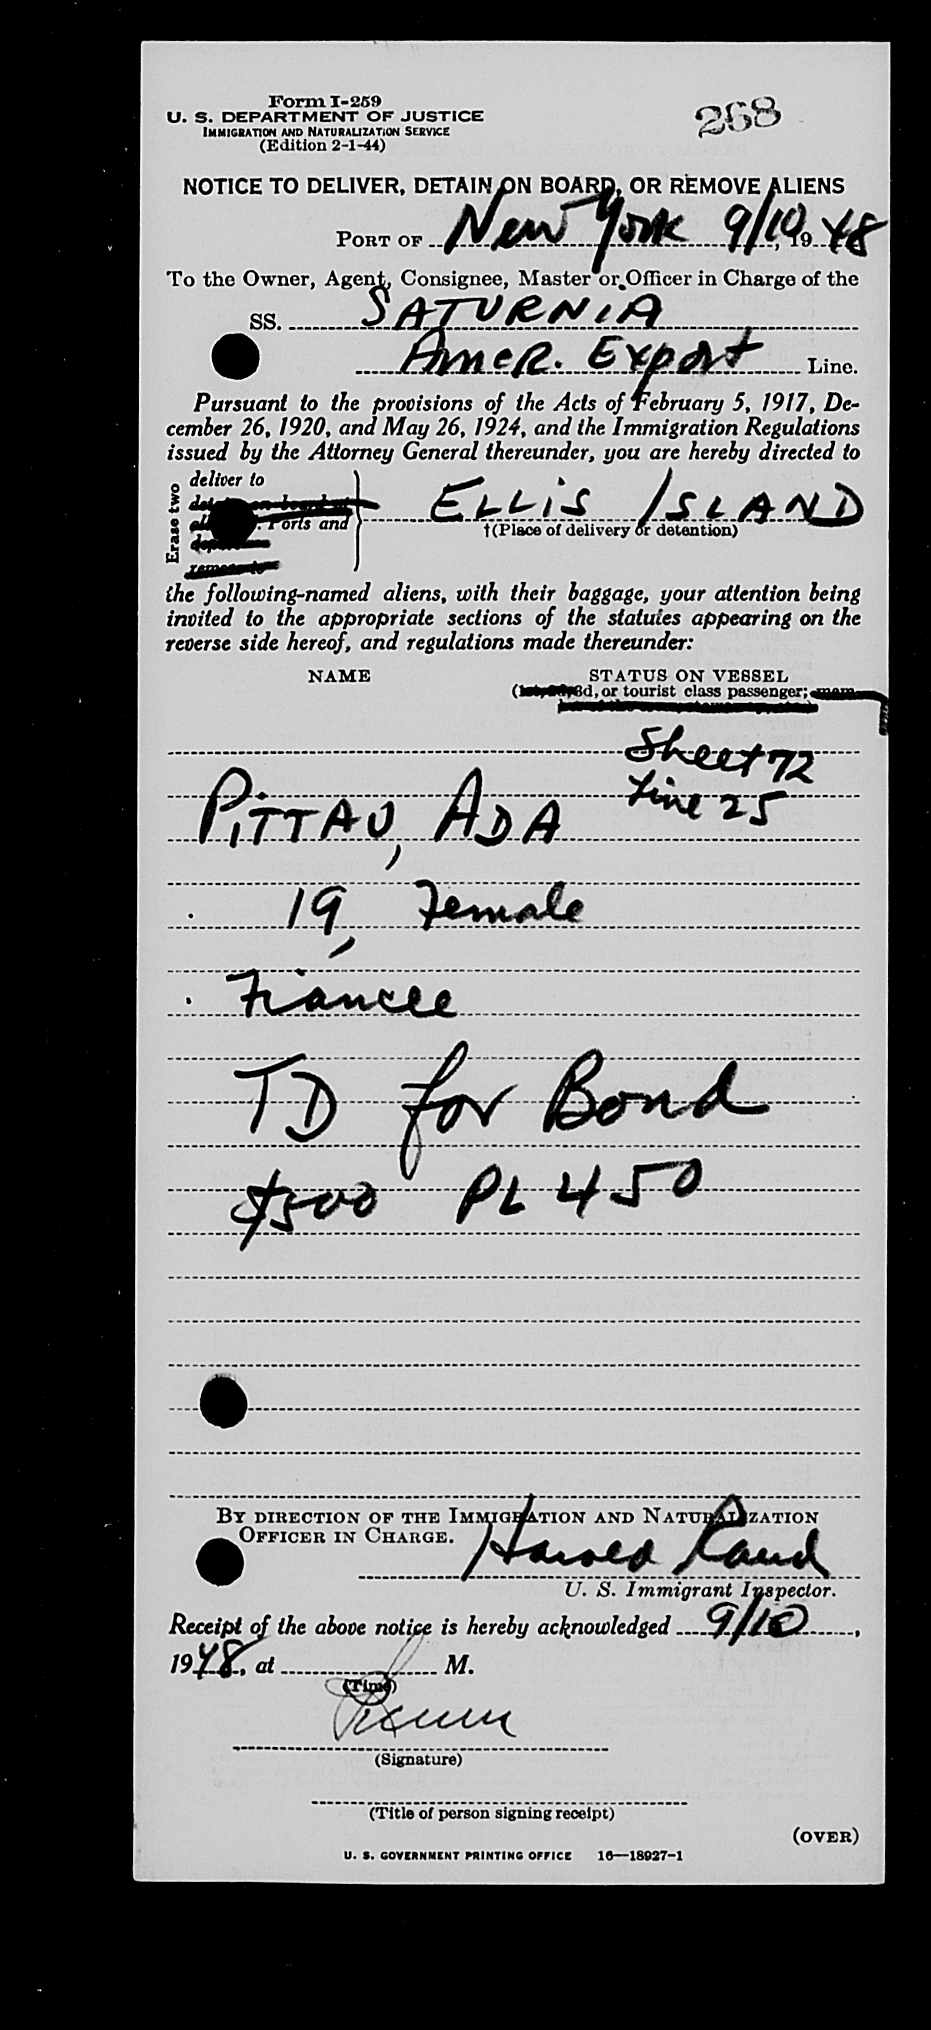 Form I-259
U. S. DEPARTMENT OF JUSTICE
IMMIGRATION AND NATURALIZATION SERVICE
(Edition 2-1-44)
268
NOTICE TO DELIVER, DETAIN ON BOARD, OR REMOVE ALIENS
PORT OF New York 9/10, 1948
To the Owner, Agent, Consignee, Master or Officer in Charge of the
SS. SATURNIA
AmeR. Export Line.
Pursuant to the provisions of the Acts of February 5, 1917, De-
cember 26, 1920, and May 26, 1924, and the Immigration Regulations
issued by the Attorney General thereunder, you are hereby directed to
Erase two
deliver to
ELLIS ISLAND
Ports and
†(Place of delivery or detention)
the following-named aliens, with their baggage, your attention being
invited to the appropriate sections of the statutes appearing on the
reverse side hereof, and regulations made thereunder:
NAME STATUS ON VESSEL
3d, or tourist class passenger;
Sheet 72
Line 25
PITTAU, ADA
19, Female
Fiancee
TD for Bond
$500 PL 450
BY DIRECTION OF THE IMMIGRATION AND NATURALIZATION
OFFICER IN CHARGE.
Harold Rand
U. S. Immigrant Inspector.
Receipt of the above notice is hereby acknowledged 9/10,
1948, at M.
(Time)
(Signature)
(Title of person signing receipt)
(OVER)
U. S. GOVERNMENT PRINTING OFFICE 16—18927-1